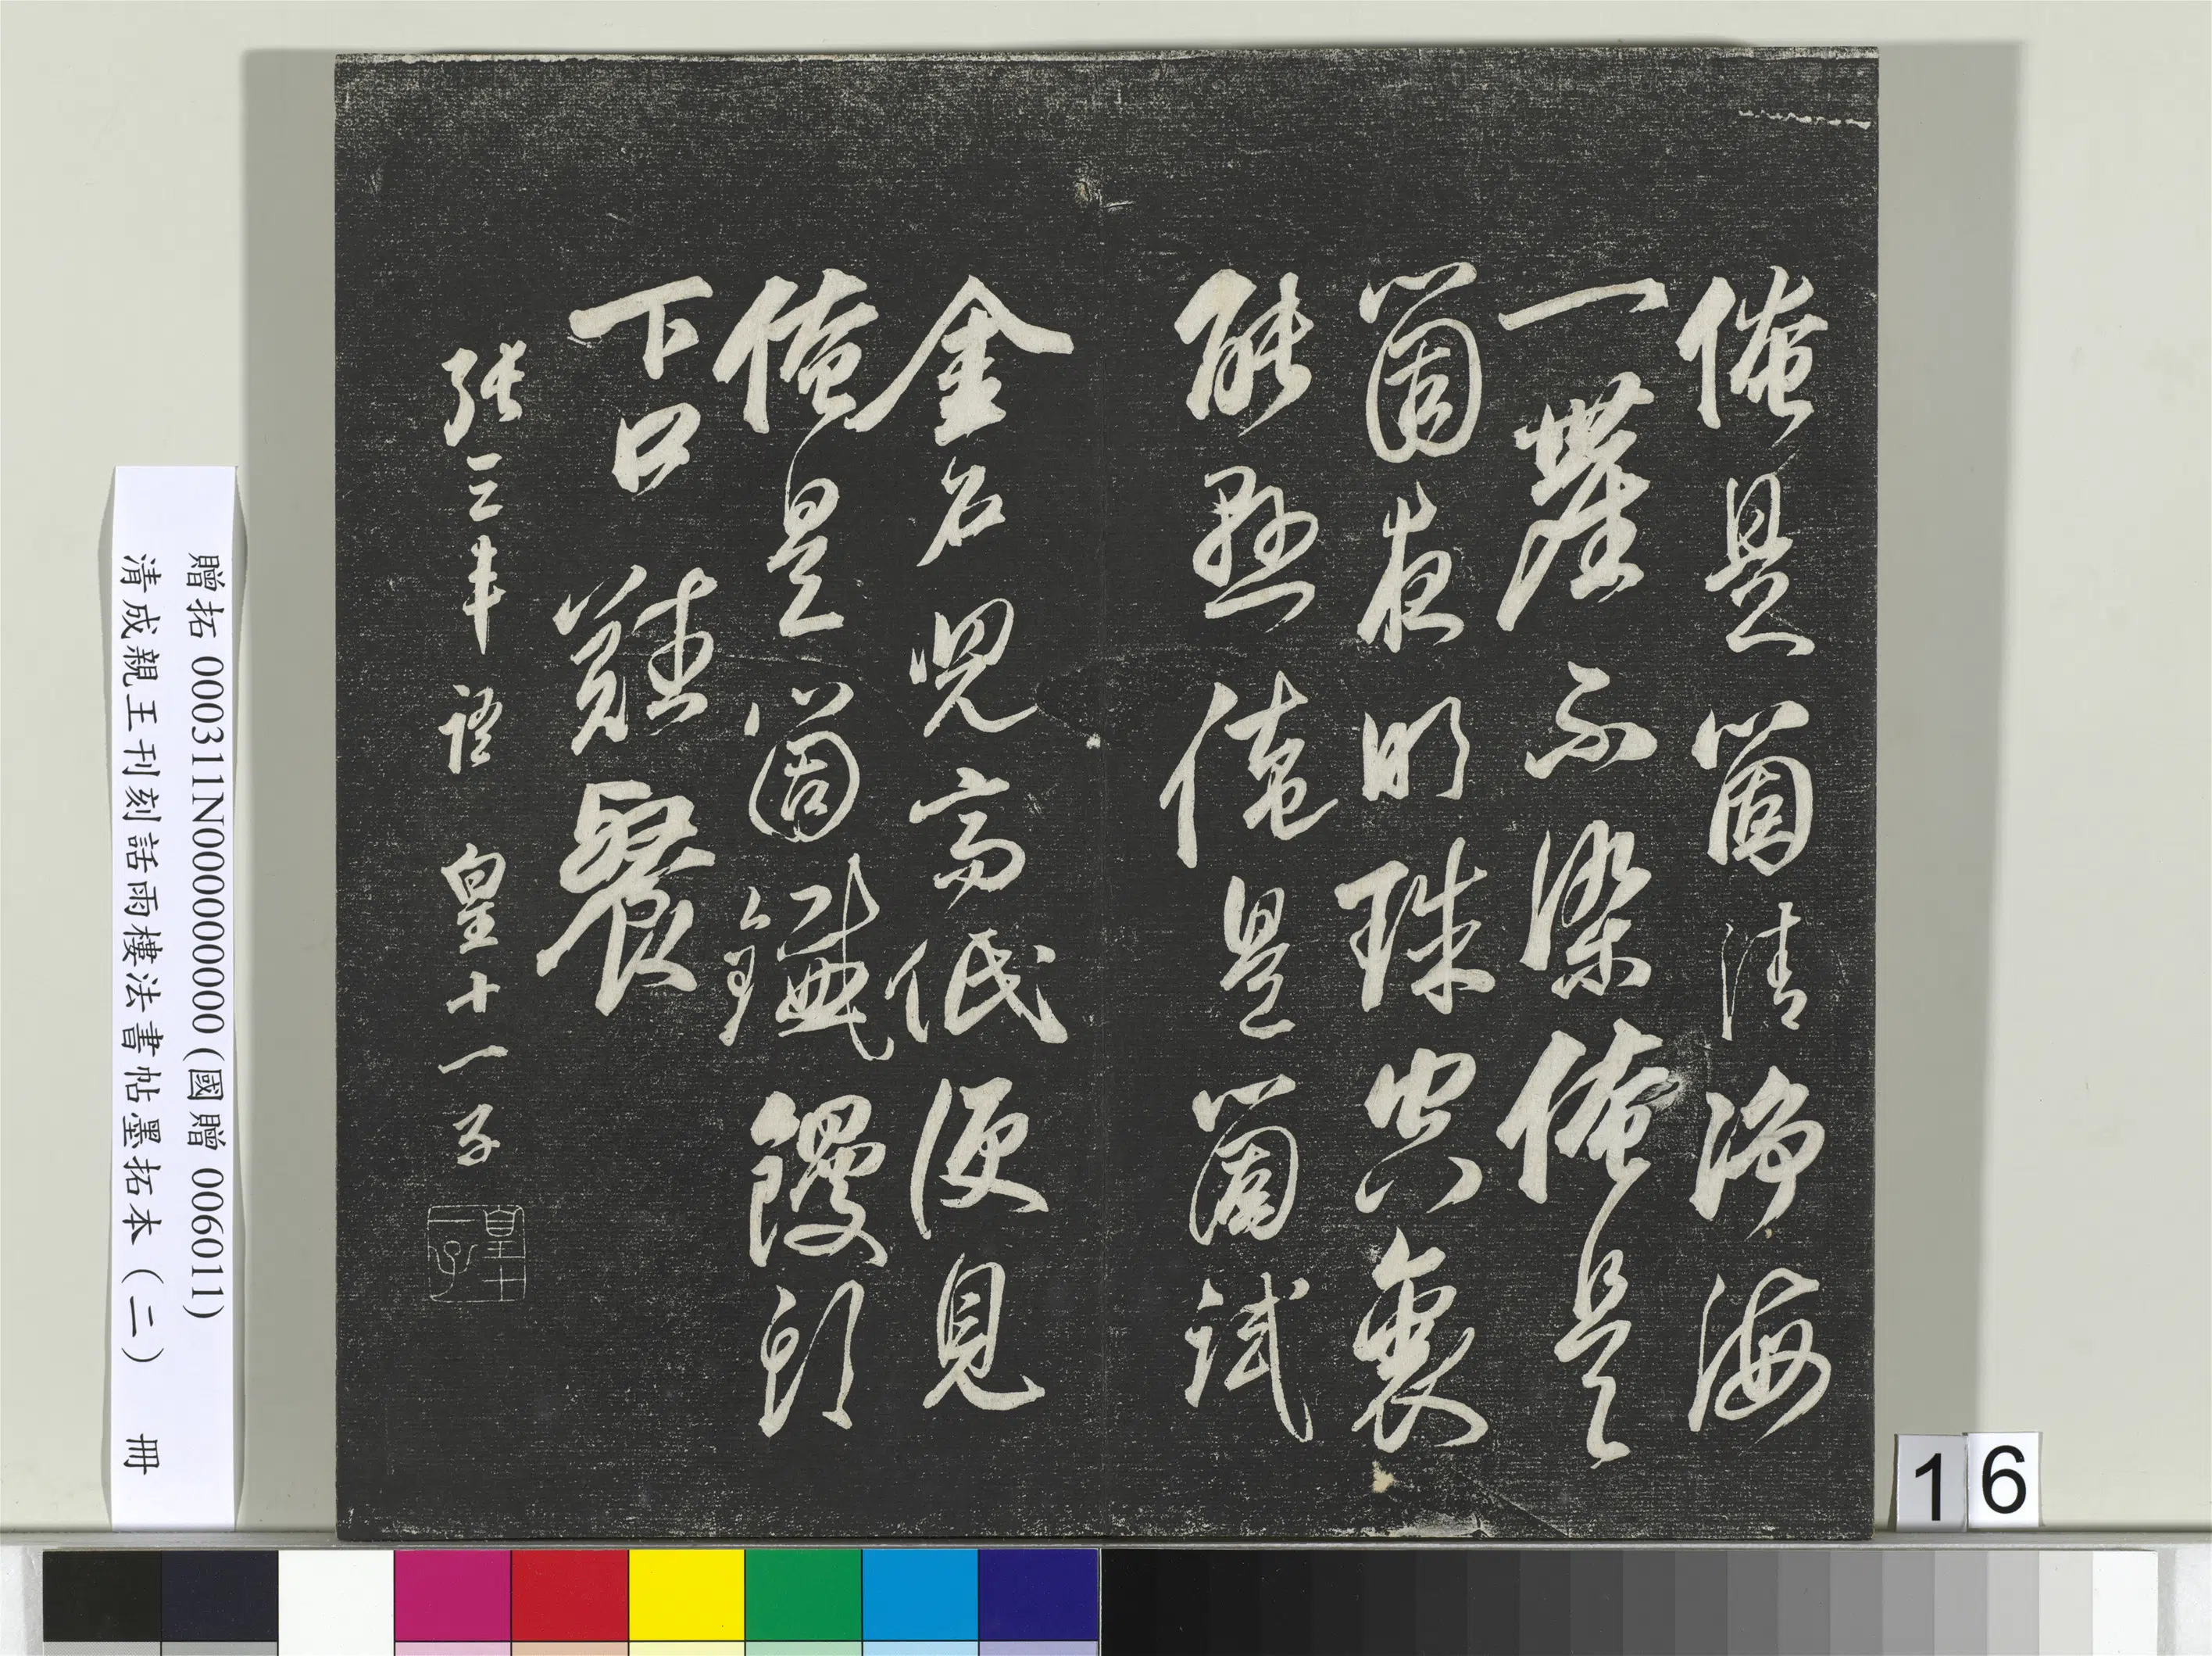 俺是箇清淨海
一塵不染俺是
箇夜明珠空裏
能懸俺是箇試
金石兒高低便見
俺是箇鐵饅頭
下口難餐
張三丰語 皇十一子
皇十一子
贈拓 000311N000000000 (國贈 006011)
清成親王刊刻話雨樓法書帖墨拓本（二） 冊
16